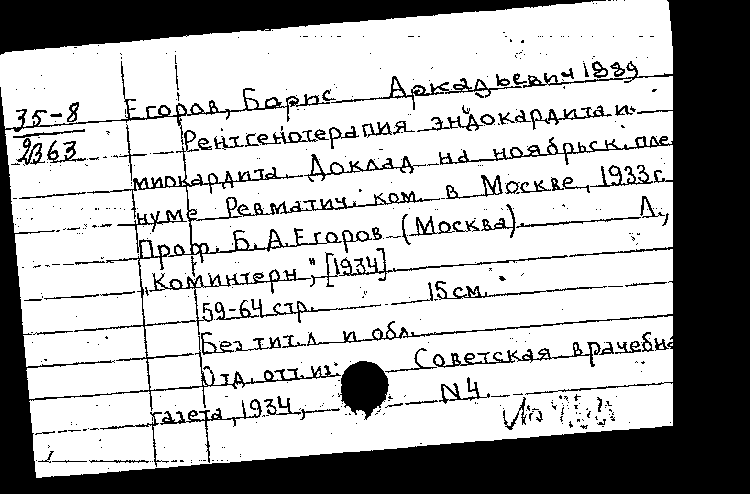 35-8
2363
Егоров, Борис Аркадьевич 1889
Рентгенотерапия эндокардита и
миокардита. Доклад на ноябрьск. пле
нуме Ревматич. ком. в Москве, 1933 г.
Проф. Б. А. Егоров (Москва). Л.,
„Коминтерн", [1934].
59-64 стр. 15 см.
Без тит. л и обл.
Отд. отт. из: Советская врачебна
газета, 1934, N 4.